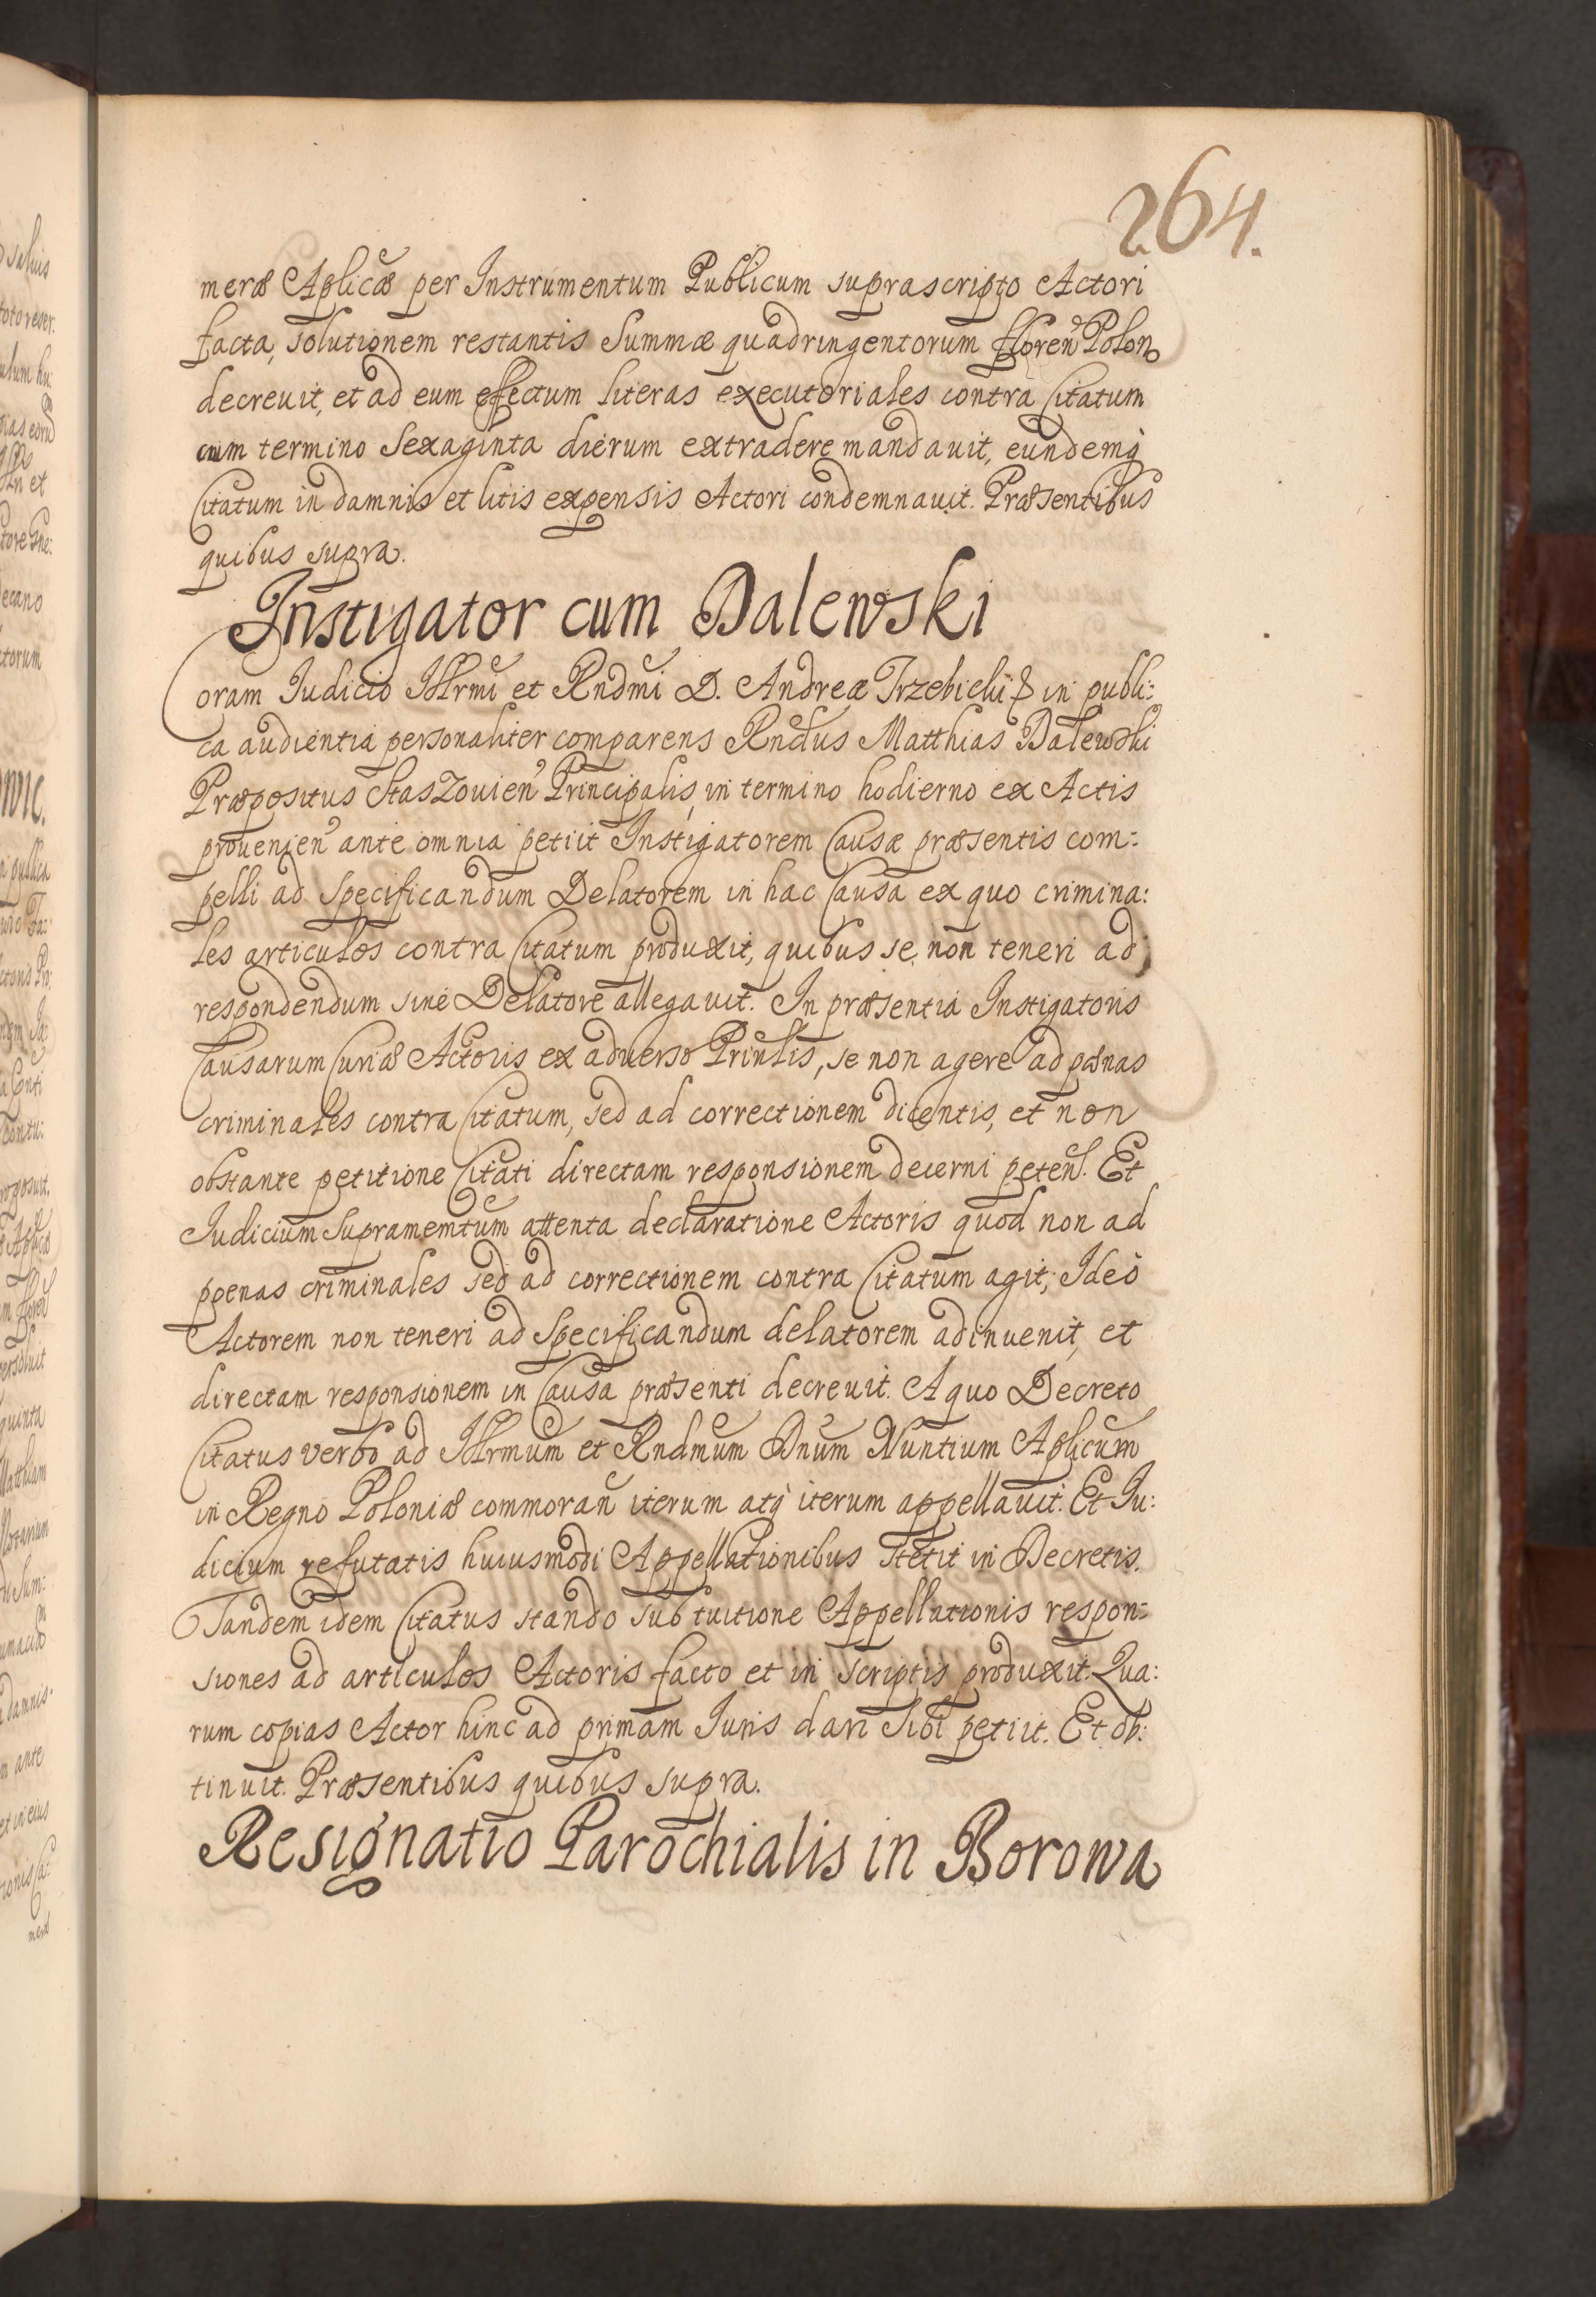 264.
meræ Aplicæ per Instrumentum Publicum suprascripto Actori
facta, solutionem restantis Summæ quadringentorum floren Polon
decreuit, et ad eum effectum literas executoriales contra Citatum
cum termino Sexaginta dierum extradere mandauit, eundemq
Citatum in damnis et litis expensis Actori condemnauit. Præsentibus
quibus supra.
Instigator cum Dalewski
Coram Iudicio Illrmi et Rndmi D. Andreæ Trzebicki & in publi:
ca audientia personaliter comparens Rndus Matthias Dalewski
Præpositus Staszouien Principalis, in termino hodierno ex Actis
prouenien ante omnia petiit Instigatorem Causæ præsentis com:
pelli ad specificandum Delatorem in hac Causa ex quo crimina:
les articulos contra Citatum produxit, quibus se non teneri ad
respondendum sine Delatore allegauit. In præsentia Instigatoris
Causarum Curiæ Actoris ex aduerso Prinlis, se non agere ad pœnas
criminales contra Citatum, sed ad correctionem dicentis, et non
obstante petitione Citati directam responsionem decerni peten. Et
Iudicium supramemtum attenta declaratione Actoris quod non ad
poenas criminales sed ad correctionem contra Citatum agit; Ideo
Actorem non teneri ad specificandum delatorem adinuenit, et
directam responsionem in Causa præsenti decreuit. A quo Decreto
Citatus verbo ad Illrmum et Rndmum Dnum Nuntium Aplicum
in Regno Poloniæ commoran iterum atq iterum appellauit. Et Iu:
dicium refutatis huiusmodi Appellationibus stetit in Decretis.
Tandem idem Citatus stando sub tuitione Appellationis respon:
siones ad articulos Actoris facto et in scriptis produxit. Qua:
rum copias Actor hinc ad primam Iuris dari sibi petiit. Et ob:
tinuit. Præsentibus quibus supra.
Resignatio Parochialis in Borowa